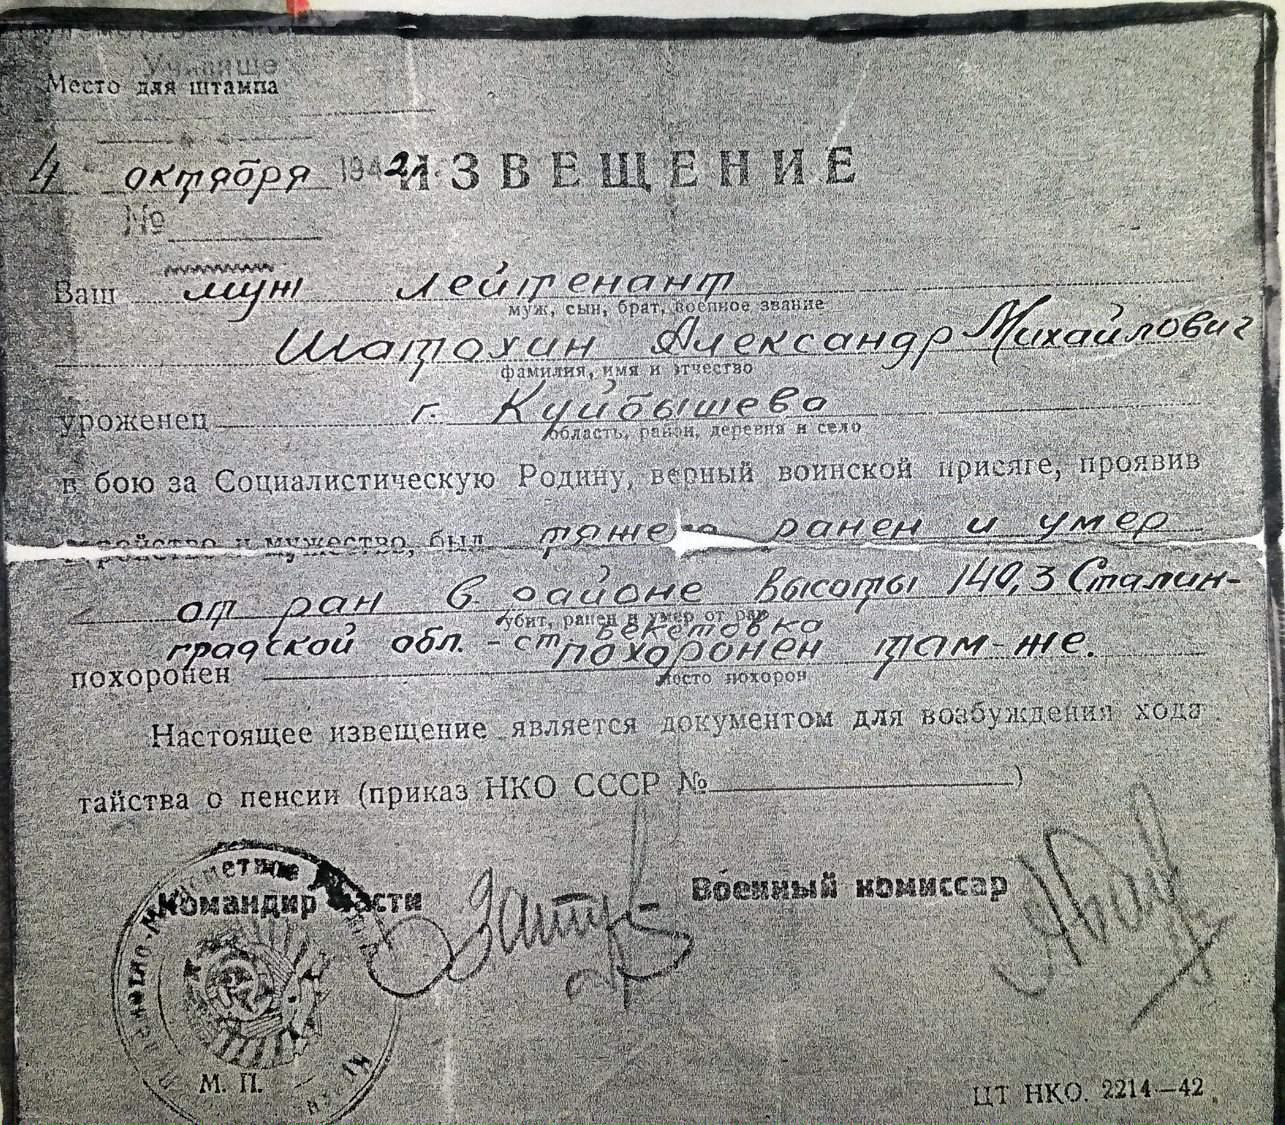 Училище
Место для штампа
4 октября 1942 г. ИЗВЕЩЕНИЕ
№
Ваш муж лейтенант
муж, сын, брат, военное звание
Шатохин Александр Михайлович
фамилия, имя и отчество
уроженец г. Куйбышева
область, район, деревня и село
в бою за Социалистическую Родину, верный воинской присяге, проявив
геройство и мужество, был тяжело ранен и умер
от ран в районе высоты 140,3 Сталин-
убит, ранен и умер от ран
градской обл. - ст. Бекетовка похоронен там-же.
похоронен
место похорон
Настоящее извещение является документом для возбуждения хода
тайства о пенсии (приказ НКО СССР № )
Командир части Военный комиссар
М. П.
ЦТ НКО. 2214—42